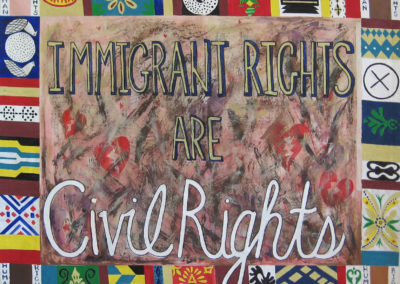 IMMIGRANT RIGHTS
ARE
Civil Rights